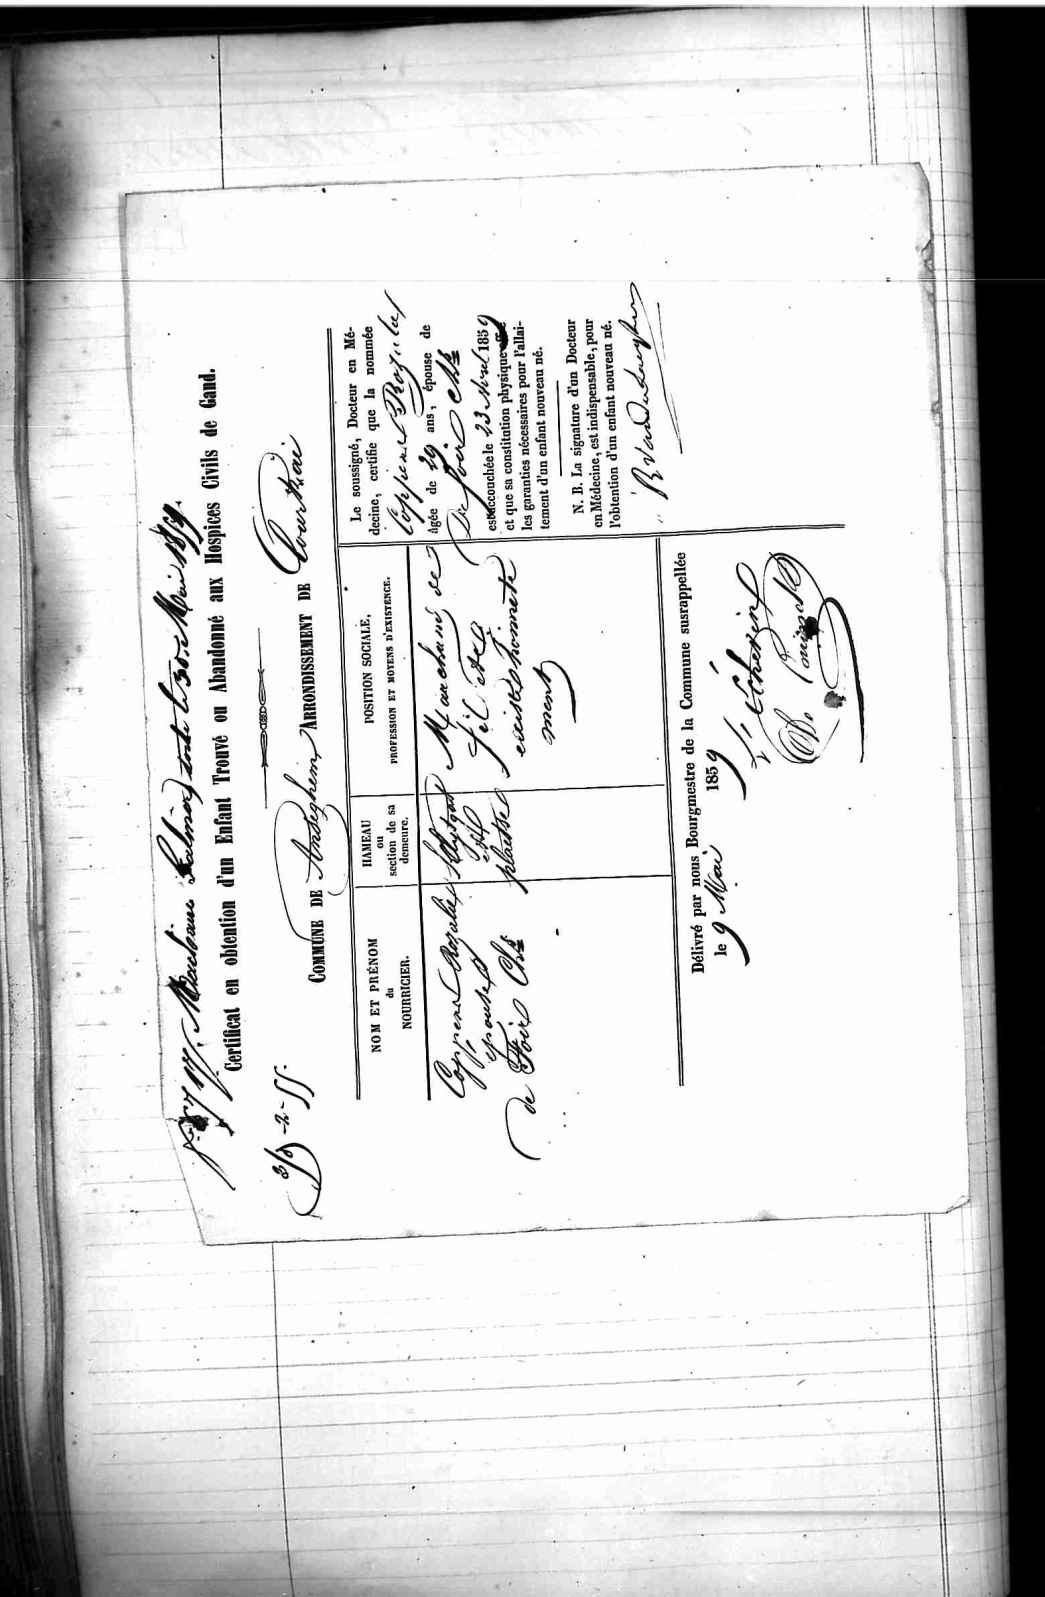 Certificat en obtention d'un Enfant Trouvé ou Abandonné aux Hospices Civils de Gand.
COMMUNE DE Anseghem, ARRONDISSEMENT DE Courtrai
NOM ET PRÉNOM
du
NOURRICIER.
Coppens Rosalie
épouse
de Foir Chs
HAMEAU
ou
section de sa
demeure.
plaetse
POSITION SOCIALE,
PROFESSION ET MOYENS D'EXISTENCE.
Marchand de
fil et
existe honnete
ment
Le soussigné, Docteur en Mé-
decine, certifie que la nommée
Coppens Rosalie
âgée de 29 ans, épouse de
De foir Chs
est accouchée le 23 Avril 1859
et que sa constitution physique offre
les garanties nécessaires pour l'allai-
tement d'un enfant nouveau né.
N. B. La signature d'un Docteur
en Médecine, est indispensable, pour
l'obtention d'un enfant nouveau né.
Délivré par nous Bourgmestre de la Commune susrappellée
le 9 Mai 1859
L'Échevin